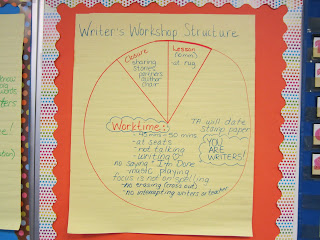 Writer's Workshop Structure
Closure
sharing
stories
partners
author
chair
Lesson
(10 min)
at rug
Worktime:
- 45 min - 50 min
- at seats
- not talking
- writing
no saying "I'm Done"
music playing
focus is not on spelling
- no erasing (cross out)
- no interrupting writers or teacher
TA will date
stamp paper
YOU
ARE
WRITERS!